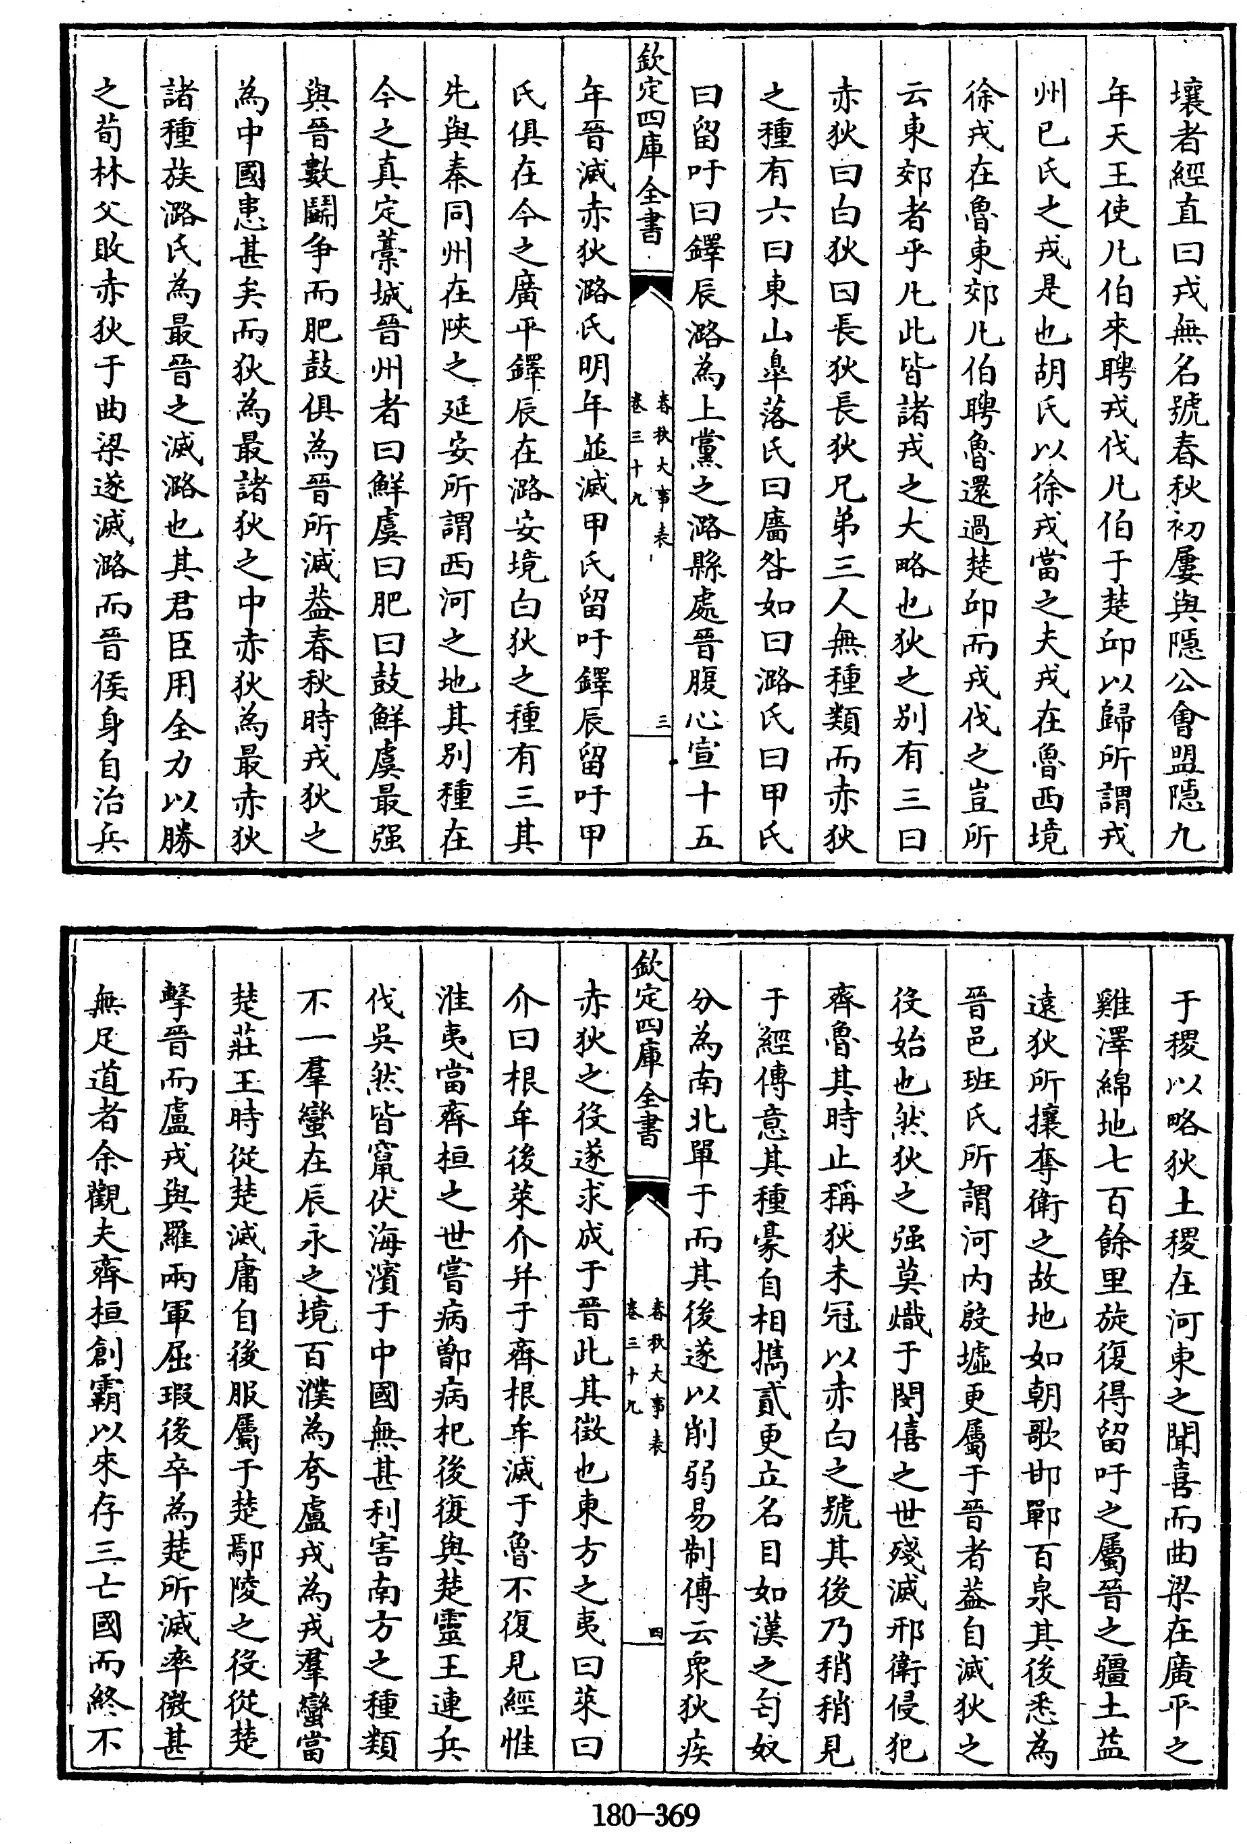 壤者經直曰戎無名號春秋初屢與隱公會盟隱九
年天王使凡伯來聘戎伐凡伯于楚邱以歸所謂戎
州已氏之戎是也胡氏以徐戎當之夫戎在魯西境
徐戎在魯東郊凡伯聘魯還過楚邱而戎伐之豈所
云東郊者乎凡此皆諸戎之大略也狄之別有三曰
赤狄曰白狄曰長狄長狄兄弟三人無種類而赤狄
之種有六曰東山臯落氏曰廧咎如曰潞氏曰甲氏
曰留吁曰鐸辰潞為上黨之潞縣處晉腹心宣十五
欽定四庫全書
春秋大事表
卷三十九
三
年晉滅赤狄潞氏明年並滅甲氏留吁鐸辰留吁甲
氏俱在今之廣平鐸辰在潞安境白狄之種有三其
先與秦同州在陝之延安所謂西河之地其別種在
今之真定藁城晉州者曰鮮虞曰肥曰鼓鮮虞最强
與晉數鬭爭而肥鼓俱為晉所滅葢春秋時戎狄之
為中國患甚矣而狄為最諸狄之中赤狄為最赤狄
諸種族潞氏為最晉之滅潞也其君臣用全力以勝
之荀林父敗赤狄于曲梁遂滅潞而晉侯身自治兵
于稷以略狄土稷在河東之聞喜而曲梁在廣平之
雞澤綿地七百餘里旋復得留吁之屬晉之疆土益
遠狄所攘奪衛之故地如朝歌邯鄲百泉其後悉為
晉邑班氏所謂河内殷墟更屬于晉者葢自滅狄之
役始也然狄之强莫熾于閔僖之世殘滅邢衛侵犯
齊魯其時止稱狄未冠以赤白之號其後乃稍稍見
于經傳意其種豪自相擕貳更立名目如漢之匈奴
分為南北單于而其後遂以削弱易制傳云衆狄疾
欽定四庫全書
春秋大事表
卷三十九
四
赤狄之役遂求成于晉此其徵也東方之夷曰萊曰
介曰根牟後萊介并于齊根牟滅于魯不復見經惟
淮夷當齊桓之世嘗病鄫病杞後復與楚靈王連兵
伐吳然皆竄伏海濱于中國無甚利害南方之種類
不一羣蠻在辰永之境百濮為夸盧戎為戎羣蠻當
楚莊王時從楚滅庸自後服屬于楚鄢陵之役從楚
擊晉而盧戎與羅兩軍屈瑕後卒為楚所滅率微甚
無足道者余觀夫齊桓創霸以來存三亡國而終不
180-369